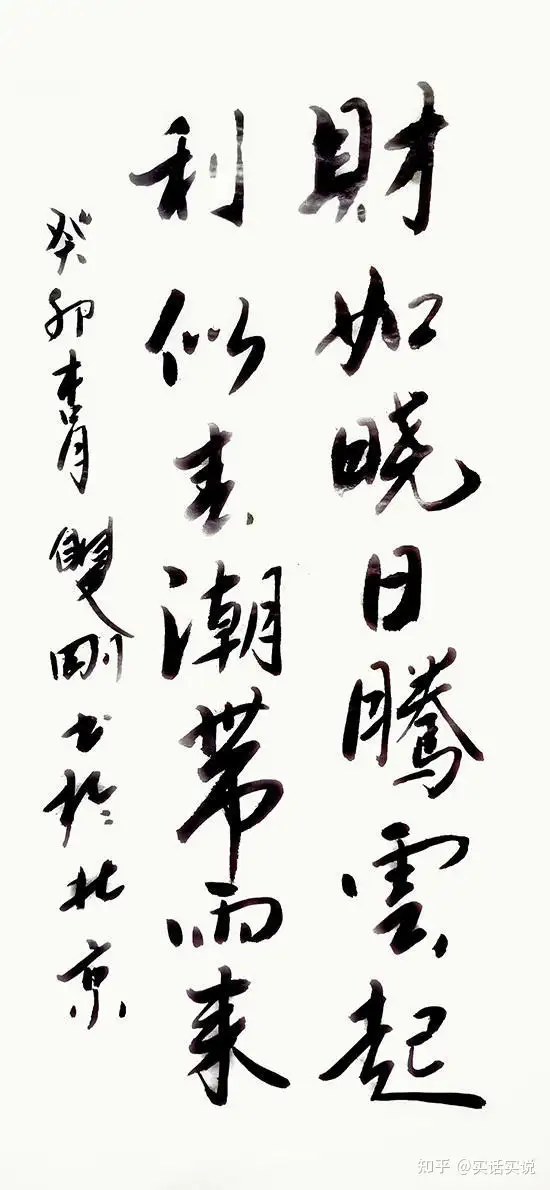 財如晓日騰雲起
利似春潮帶雨来
癸卯杏月雙剛书於北京
知乎 @实话实说